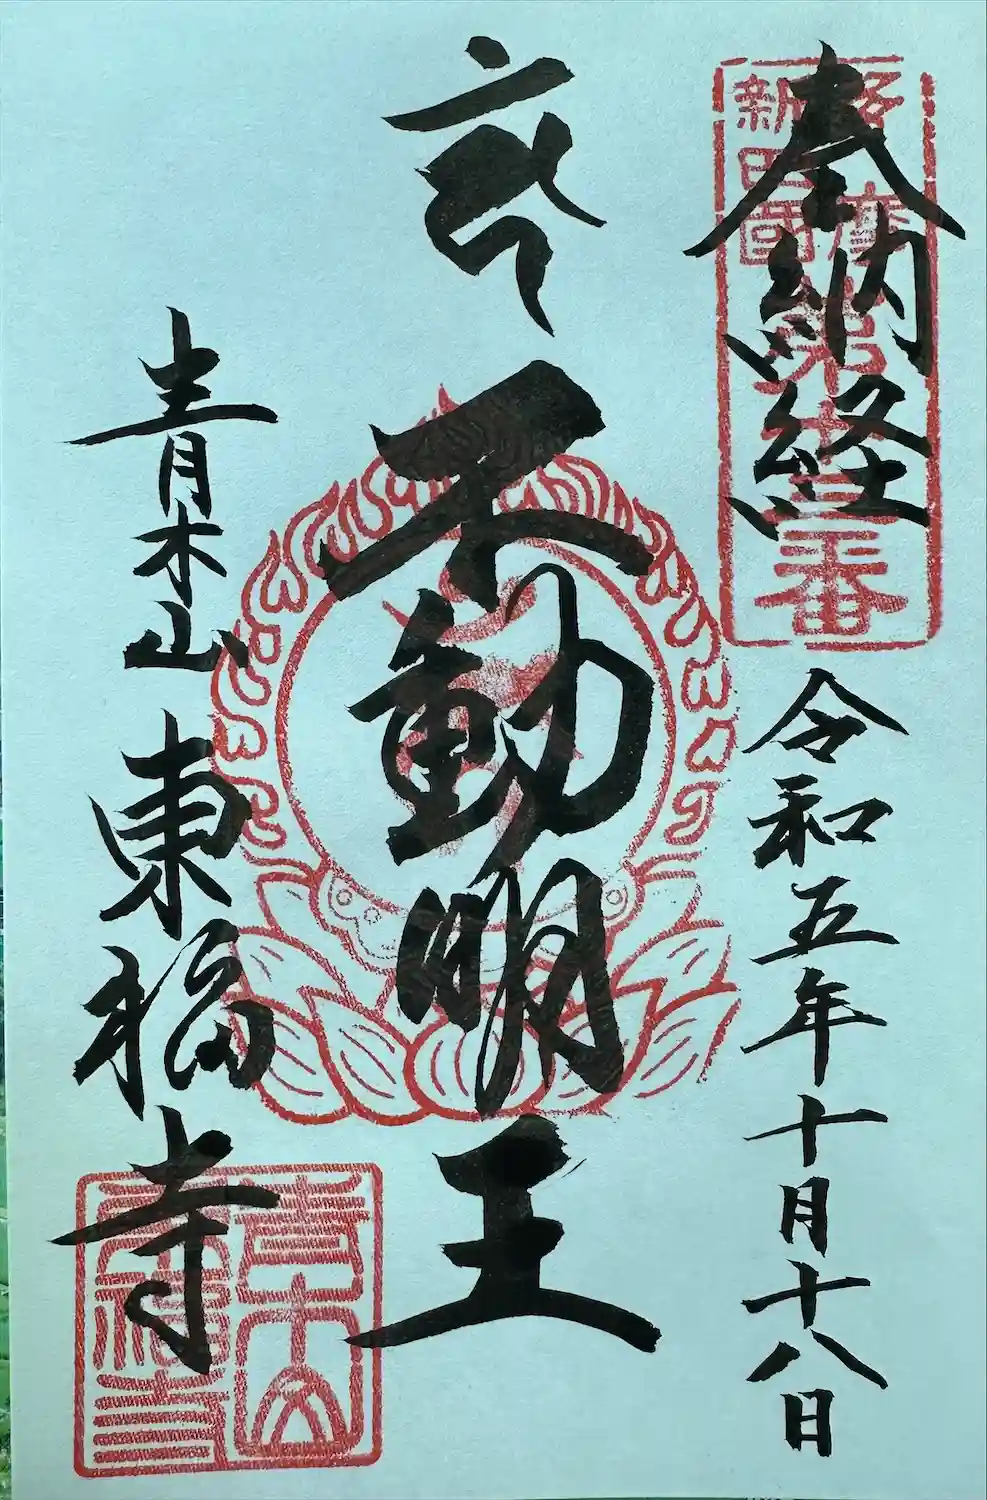 奉納経
令和五年十月十八日
不動明王
青木山 東福寺
新四國
第十三番
青木山
東福寺